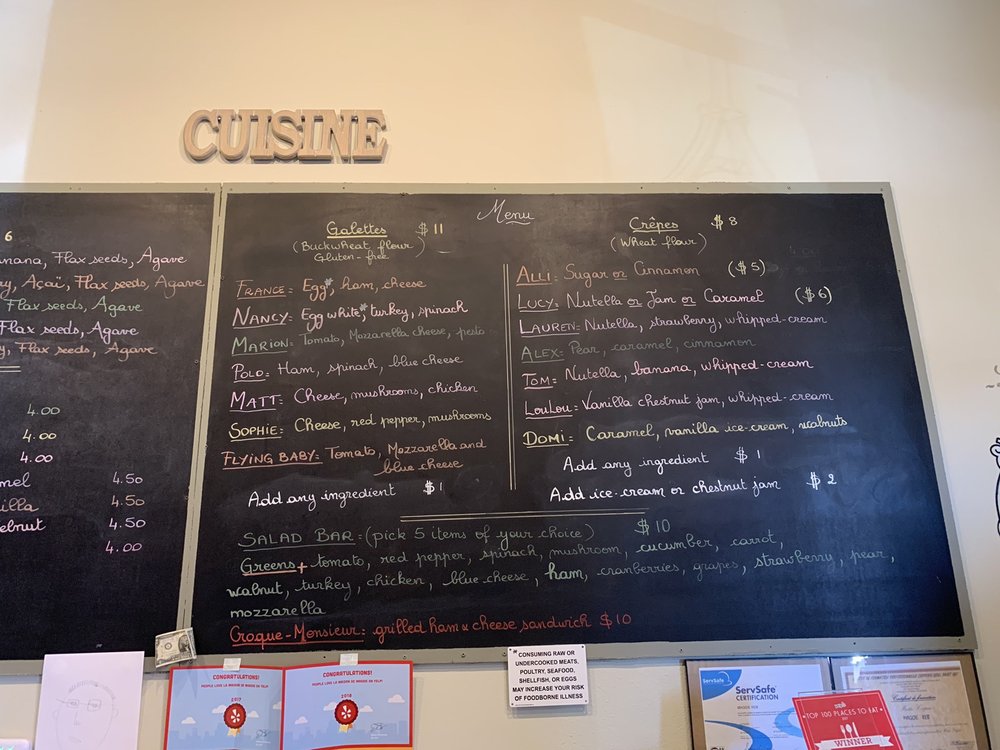 CUISINE
6
anana, Flax seeds, Agave
y, Açaï, Flax seeds, Agave
Flax seeds, Agave
Flax seeds, Agave
y, Flax seeds, Agave
4.00
4.00
4.00
mel 4.50
illa 4.50
elnut 4.50
4.00
Menu
Galettes $11
(Buckwheat flour)
Gluten-free
FRANCE: Egg*, ham, cheese
NANCY: Egg white*, turkey, spinach
MARION: Tomato, Mozzarella cheese, pesto
POLO: Ham, spinach, blue cheese
MATT: Cheese, mushrooms, chicken
SOPHIE: Cheese, red pepper, mushrooms
FLYING BABY: Tomato, Mozzarella and
blue cheese
Add any ingredient $1
Crêpes $8
(Wheat flour)
ALLI: Sugar or Cinnamon ($5)
LUCY: Nutella or Jam or Caramel ($6)
LAUREN: Nutella, strawberry, whipped-cream
ALEX: Pear, caramel, cinnamon
TOM: Nutella, banana, whipped-cream
LOULOU: Vanilla chestnut jam, whipped-cream
DOMI: Caramel, vanilla ice-cream, walnuts
Add any ingredient $1
Add ice-cream or chestnut jam $2
SALAD BAR: (pick 5 items of your choice) $10
Greens + tomato, red pepper, spinach, mushroom, cucumber, carrot,
walnut, turkey, chicken, blue cheese, ham, cranberries, grapes, strawberry, pear,
mozzarella
Croque-Monsieur: grilled ham & cheese sandwich $10
CONGRATULATIONS!
PEOPLE LOVE LA MAISON DE MAGGIE ON YELP!
2017
CONGRATULATIONS!
PEOPLE LOVE LA MAISON DE MAGGIE ON YELP!
2018
* CONSUMING RAW OR
UNDERCOOKED MEATS,
POULTRY, SEAFOOD,
SHELLFISH, OR EGGS
MAY INCREASE YOUR RISK
OF FOODBORNE ILLNESS
ServSafe
ServSafe
CERTIFICATION
TOP 100 PLACES TO EAT
WINNER